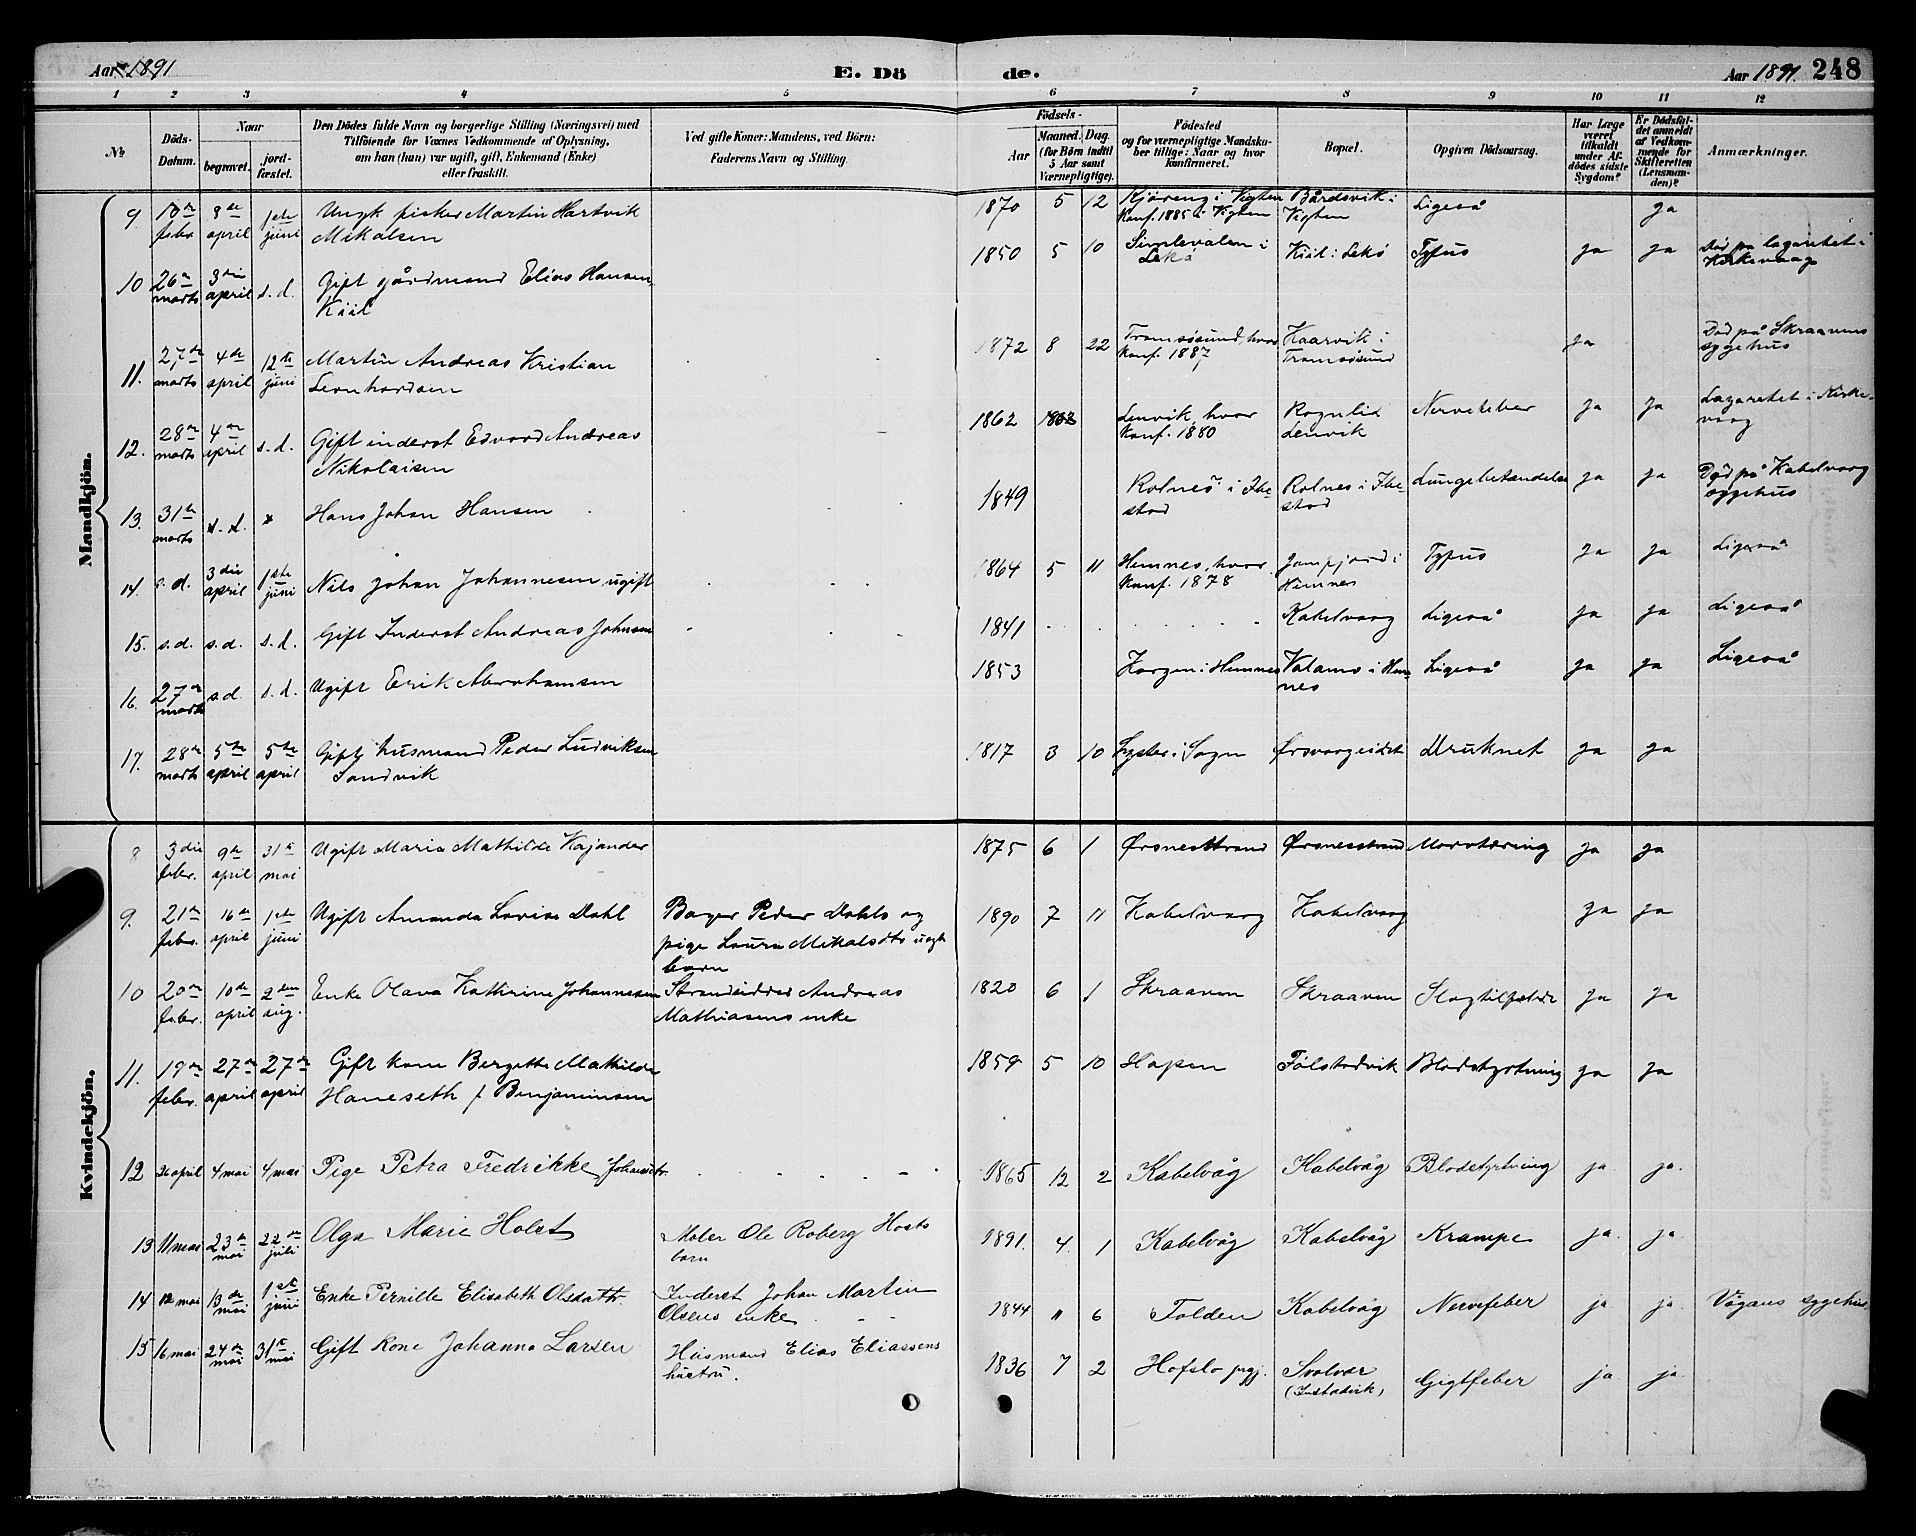 Aar 1891
E. Dö
de.
Aar 1891. 248
1 2 3 4 5 6 7 8 9 10 11 12
№
Döds-
Datum.
Naar
begravet.
jord-
fæstet.
Den Dödes fulde Navn og borgerlige Stilling (Næringsvei) med
Tilföiende for Voxnes Vedkommende af Oplysning,
om han (hun) var ugift, gift, Enkemand (Enke)
eller fraskilt.
Ved gifte Koner: Mandens, ved Börn:
Faderens Navn og Stilling.
Födsels-
Aar
Maaned.
Dag.
(for Börn indtil
5 Aar samt
Værnepligtige).
Födested
og for værnepligtige Mandska-
ber tillige: Naar og hvor
konfirmeret.
Bopæl.
Opgiven Dödsaarsag.
Har Læge
været
tilkaldt
under Af-
dödes sidste
Sygdom?
Er Dödsfal-
det anmeldt
af Vedkom-
mende for
Skifteretten
(Lensman-
den)?
Anmærkninger.
Mandkjön.
9 10de febr. 3die april 1ste juni Ungk fisker Martin Hartvik 1870 5 12 Kjøreng i Vigten Bårdsvik i Ligeså ja
Mikalsen Konf. 1885 i Vigten Vigten
10 26de marts 3die april s.d. Gift gårdmand Elias Hansen 1850 5 10 Simlevalen i Kiil i Lekø Tyfus ja ja Død på lazaretet i
Kiil Lekø Kirkevaag
11. 27de marts 4de april 12te juni Martin Andreas Kristian 1872 8 22 Tromsøsund, hvor Kaarvik i ja Død på Skraavens
Leonhardsen Konf. 1887 Tromsøsund sygehus
12. 28de marts 4de april s.d. Gift inderst Edvard Andreas 1862 Lenvik, hvor Rognlid Nervefeber ja ja Lazaretet i Kirke-
Nikolaisen Konf. 1880 Lenvik vaag
13. 31te marts s.d. Hans Johan Hansen 1849 Rolnes i Ibe- Rolnes i Ibe- Lungebetændelse ja ja Død på Kabelvaag
stad stad sygehus
14. s.d. 3die april 1ste juni Nils Johan Johannesen ugift 1864 5 11 Hemnes, hvor i Tyfus ja ja Ligeså
Konf. 1878 Hemnes
15. s.d. s.d. s.d. Gift Inderst Andreas Johnsen 1841 Kabelvaag Ligeså ja ja Ligeså
16. 27de marts s.d. s.d. Ugift Erik Abrahamsen 1853 Korgen i Hemnes Valamo i Hem- Ligeså ja ja Ligeså
nes
17. 28de marts 5te april 5te april Gift husmand Peder Ludviksen 1817 3 10 Lyster i Sogn Ørsvaageidet Druknet ja ja
Sandvik
Kvindekjön.
8 3die febr. 9de april 31te mai Ugift Maria Mathilde Kajander 1875 6 1 Ørsnesstrand Ørsnesstrand Mavetæring ja ja
9. 21de febr. 16de april 1ste juni Ugift Amanda Lovise Dahl Bager Peder Dahls og 1890 7 11 Kabelvaag Kabelvaag ja ja
pige Laura Mikalsdts uægte
barn
10 20de febr. 10de april 2den aug. Enke Olava Kathrine Johannesen Strandsidder Andreas 1820 6 1 Skraaven Skraaven Slagtilfælde ja ja
Mathiasens enke
11. 19de febr. 27de april 27de april Gift kone Bergitte Mathilde 1859 5 10 Hopen Følstadvik Blodstyrtning ja ja
Haneseth f Benjaminsen
12 26 april 4 mai 4 mai Pige Petra Fredrikke Johansdtr. 1865 12 2 Kabelvåg Kabelvåg Blodstyrtning ja. ja.
13 11 mai 23de mai 22de juli Olga Marie Holst Maler Ole Roberg Hosts 1891. 4. 1 Kabelvåg Kabelvåg Krampe ja. ja.
barn
14 12 mai 13de mai 1ste juni Enke Pernille Elisabeth Olsdattr. Inderst Johan Martin 1844 11 6 Folden Kabelvåg Nervefeber ja. ja. Vågans sygehus
Olsens enke
15 16 mai 24de mai 31te mai Gift Kone Johanna Larsen Husmand Elias Eliassens 1836 7 2 Hafslo prgj. Svolvær Gigtfeber ja ja.
hustru.